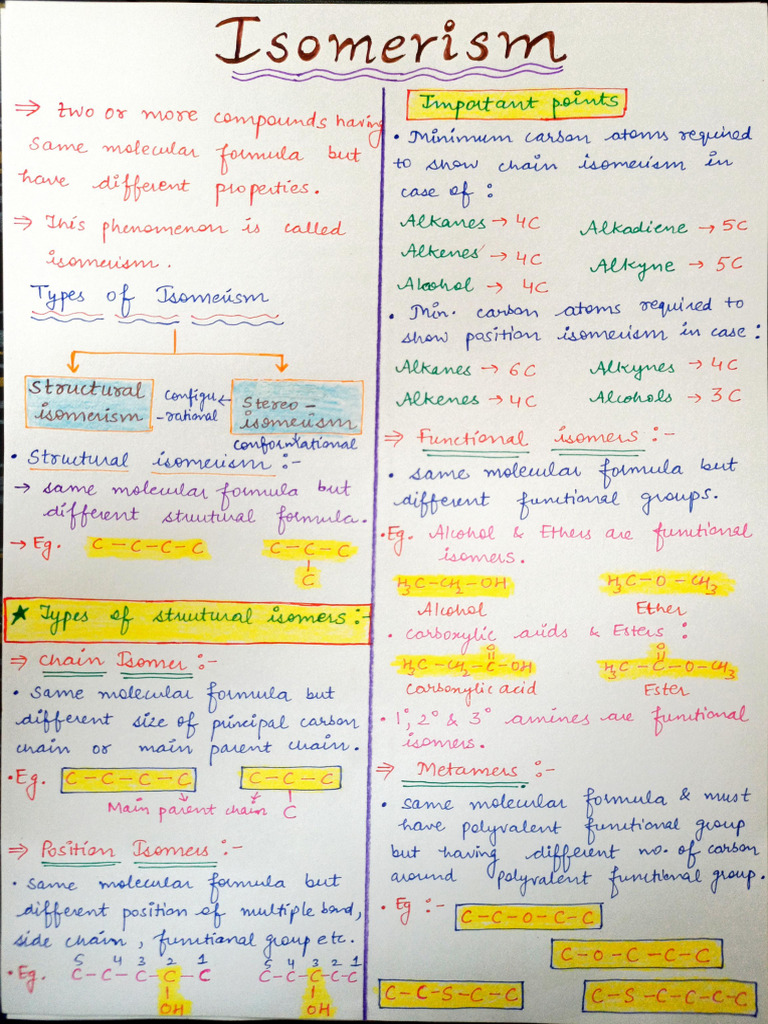 Isomerism
⇒ Two or more compounds having
same molecular formula but
have different properties.
⇒ This phenomenon is called
isomerism.
Types of Isomerism
Structural
isomerism
Configu
-rational
Stereo-
isomerism
conformational
• Structural isomerism :-
→ same molecular formula but
different strutural formula.
→ Eg. C-C-C-C C-C-C
C
★ Types of strutural isomers :-
⇒ Chain Isomer :-
• Same molecular formula but
different size of principal carbon
chain or main parent chain.
• Eg. C-C-C-C C-C-C
Main parent chain C
⇒ Position Isomers :-
• Same molecular formula but
different position of multiple bond,
side chain, functional group etc.
5 4 3 2 1 5 4 3 2 1
• Eg. C-C-C-C-C C-C-C-C-C
OH OH
Important points
• Minimum carbon atoms required
to show chain isomerism in
case of :
Alkanes → 4C Alkadiene → 5C
Alkenes → 4C Alkyne → 5C
Alcohol → 4C
• Min. carbon atoms required to
show position isomerism in case :
Alkanes → 6C Alkynes → 4C
Alkenes → 4C Alcohols → 3C
⇒ Functional isomers :-
• same molecular formula but
different functional groups.
• Eg. Alcohol & Ethers are funtional
isomers.
H3C-CH2-OH H3C-O-CH3
Alcohol Ether
• Carboxylic acids & Esters :
O O
H3C-CH2-C-OH H3C-C-O-CH3
Carboxylic acid Ester
• 1°, 2° & 3° amines are funtional
isomers.
⇒ Metamers :-
• same molecular formula & must
have polyvalent funtional group
but having different no. of carbon
around polyvalent funtional group.
• Eg :- C-C-O-C-C
C-O-C-C-C
C-C-S-C-C C-S-C-C-C-C